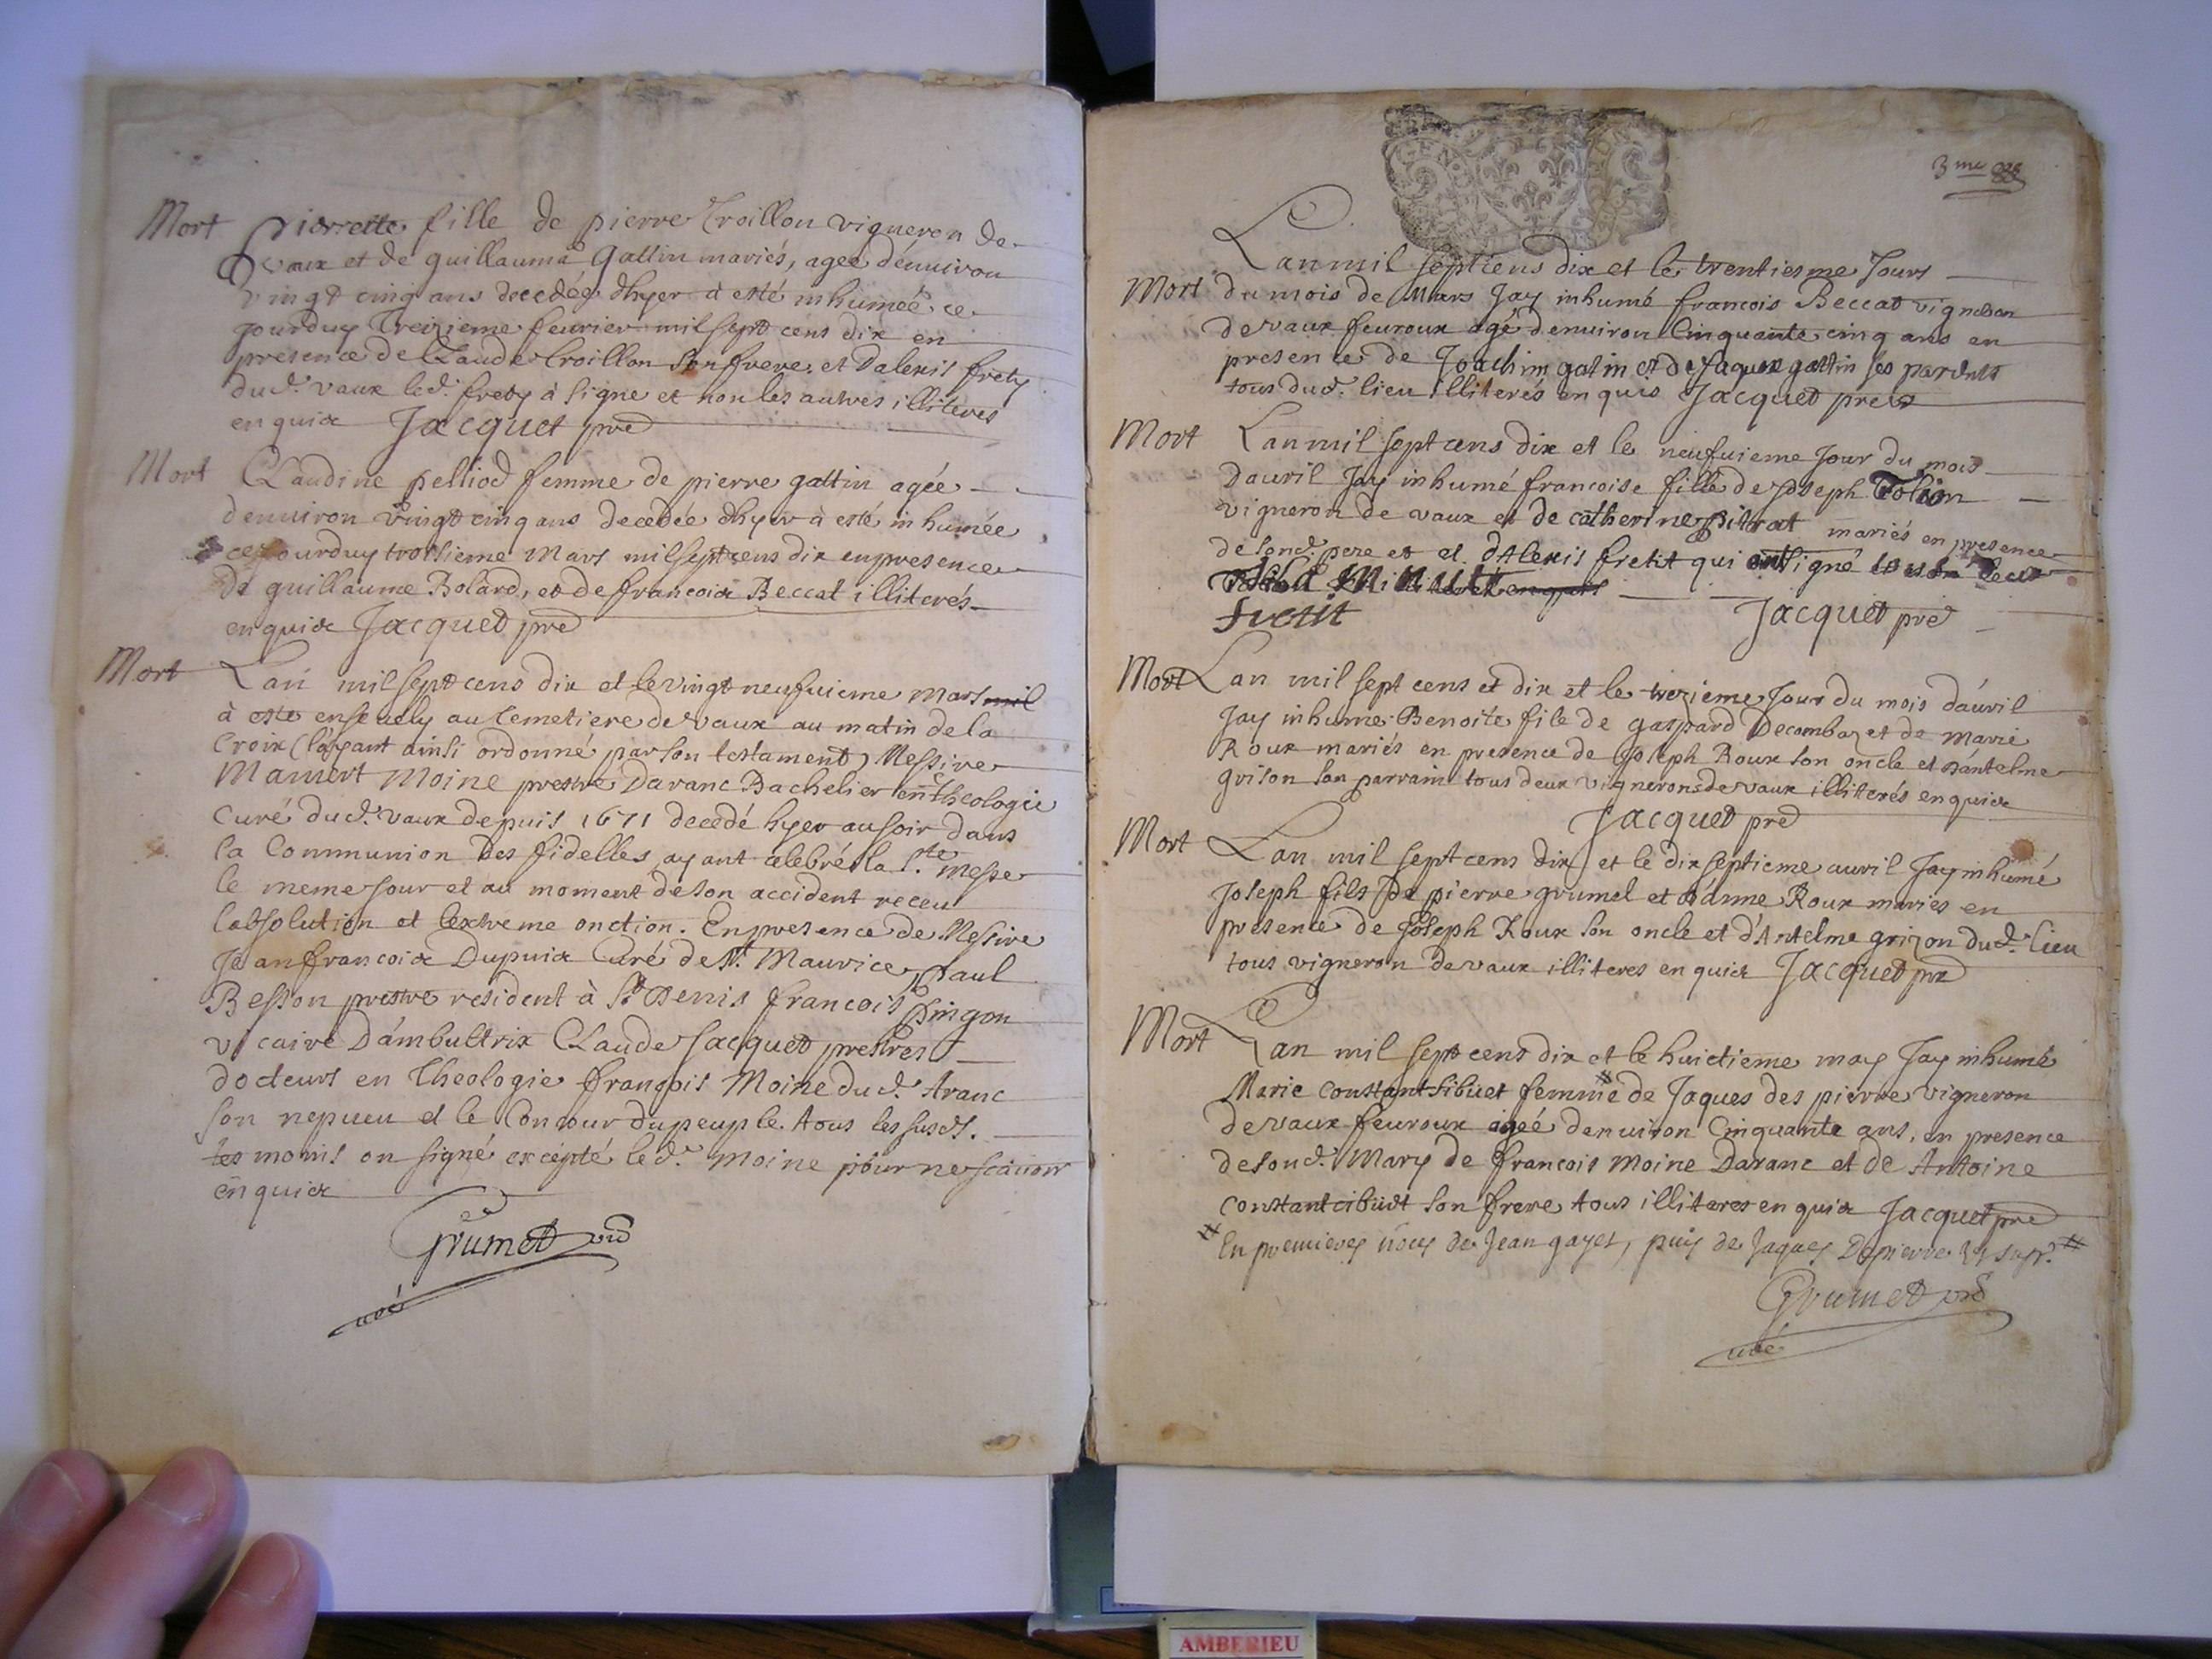 Mort Pierrette fille de pierre Croillon vigneron de
vaux et de guillauma Gattin mariés, agee dénuiron
vingt cinq ans decedée dhyer à esté inhumée ce
jourduy Treizieme feurier mil sept cens dix en
presence de Claude Croillon son frere, et Dalexis frety
dud. vaux led. frety à signe et non les autres illiteres
en quie Jacquet pre
Mort Claudine pelliod femme de pierre gattin agée
denuiron vingt cinq ans decedée dhyer à esté inhumée
ce jourduy troisieme Mars mil sept cens dix en presence
de guillaume Bolard, et de francois Beccat illiterés
en quie Jacquet pre
Mort Lan mil sept cens dix et le vingt neufuieme mars mil
à este enseuely au Cemetiere de vaux au matin de la
Croix (layant ainsi ordonné par son testament) Messire
Mamert Moine prestre Daranc Bachelier en theologie
Curé dud. vaux depuis 1671 decedé hyer au soir dans
la Communion Des fidelles, ayant celebré la Ste. Messe
le meme jour et au moment de son accident receu
labsolution et lextreme onction. En presence de Messire
Jean francois Dupuis Curé de st. Maurice, paul
Besson prestre resident à St Denis francois pingon
vicaire Dámbultrix Claude Jacquet prestres
docteurs en Theologie françois Moine dud. Aranc
son nepueu et le Concour du peuple. tous les susds.
tesmoins on signé excepté led. Moine pour ne scauoir
en quie
Grumet
curé
3me
Lan mil septcens dix et le trentiesme Jours
Mort du mois de Mars Jay inhumé francois Beccat vigneron
de vaux feuroux agé denuiron Cinquante cinq ans en
presence de Joachim gatin et de Jaques gattin ses parents
tous dud. lieu illiterés en quis Jacquet pre
Mort Lan mil sept cens dix et le neufuieme Jour du mois
Dauril Jay inhumé francoise fille de Joseph Tolion
vigneron de vaux et de catherine pitrat mariés en presence
de sond. pere et d'Alexis fretit qui signé
fretit Jacquet pre
Mort Lan mil sept cens et dix et le trezieme Jour du mois dáuril
Jay inhume Benoite file de gaspard Decombaz et de marie
Roux mariés en presence de Joseph Roux son oncle et dantelme
grison son parrain tous deux vignerons de vaux illiterés en quie
Jacquet pre
Mort Lan mil sept cens dix et le dix septieme auril Jay inhumé
Joseph fils de pierre grumel et dánne Roux mariés en
presence de Joseph Roux son oncle et d'Antelme grizon dud. lieu
tous vigneron de vaux illiteres en quie Jacquet pre
Mort Lan mil sept cens dix et le huictieme may Jay inhumé
Marie constant sibuet femme # de Jaques des pierre vigneron
de vaux feuroux ageé denuiron Cinquante ans, en presence
de sond. Mary de francois Moine Daranc et de Antoine
constant cibuet son frere tous illiteres en quie Jacquet pre
# En premieres nôces de Jean gayet, puis de Jaques Depierre #
Grumet
curé
AMBERIEU